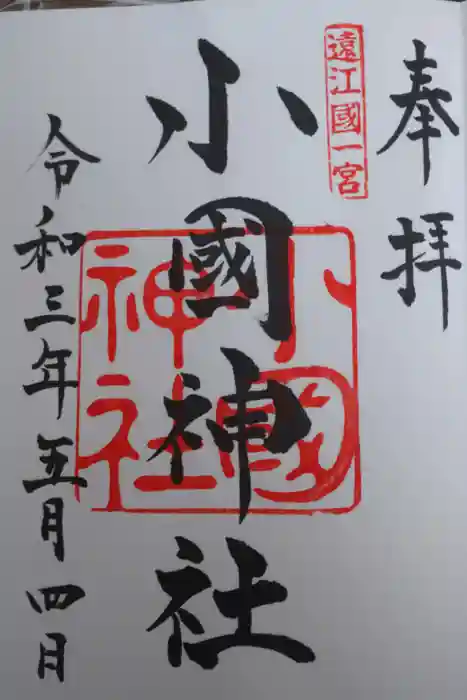 奉拝
遠江國一宮
小國神社
小國
神社
令和三年五月四日